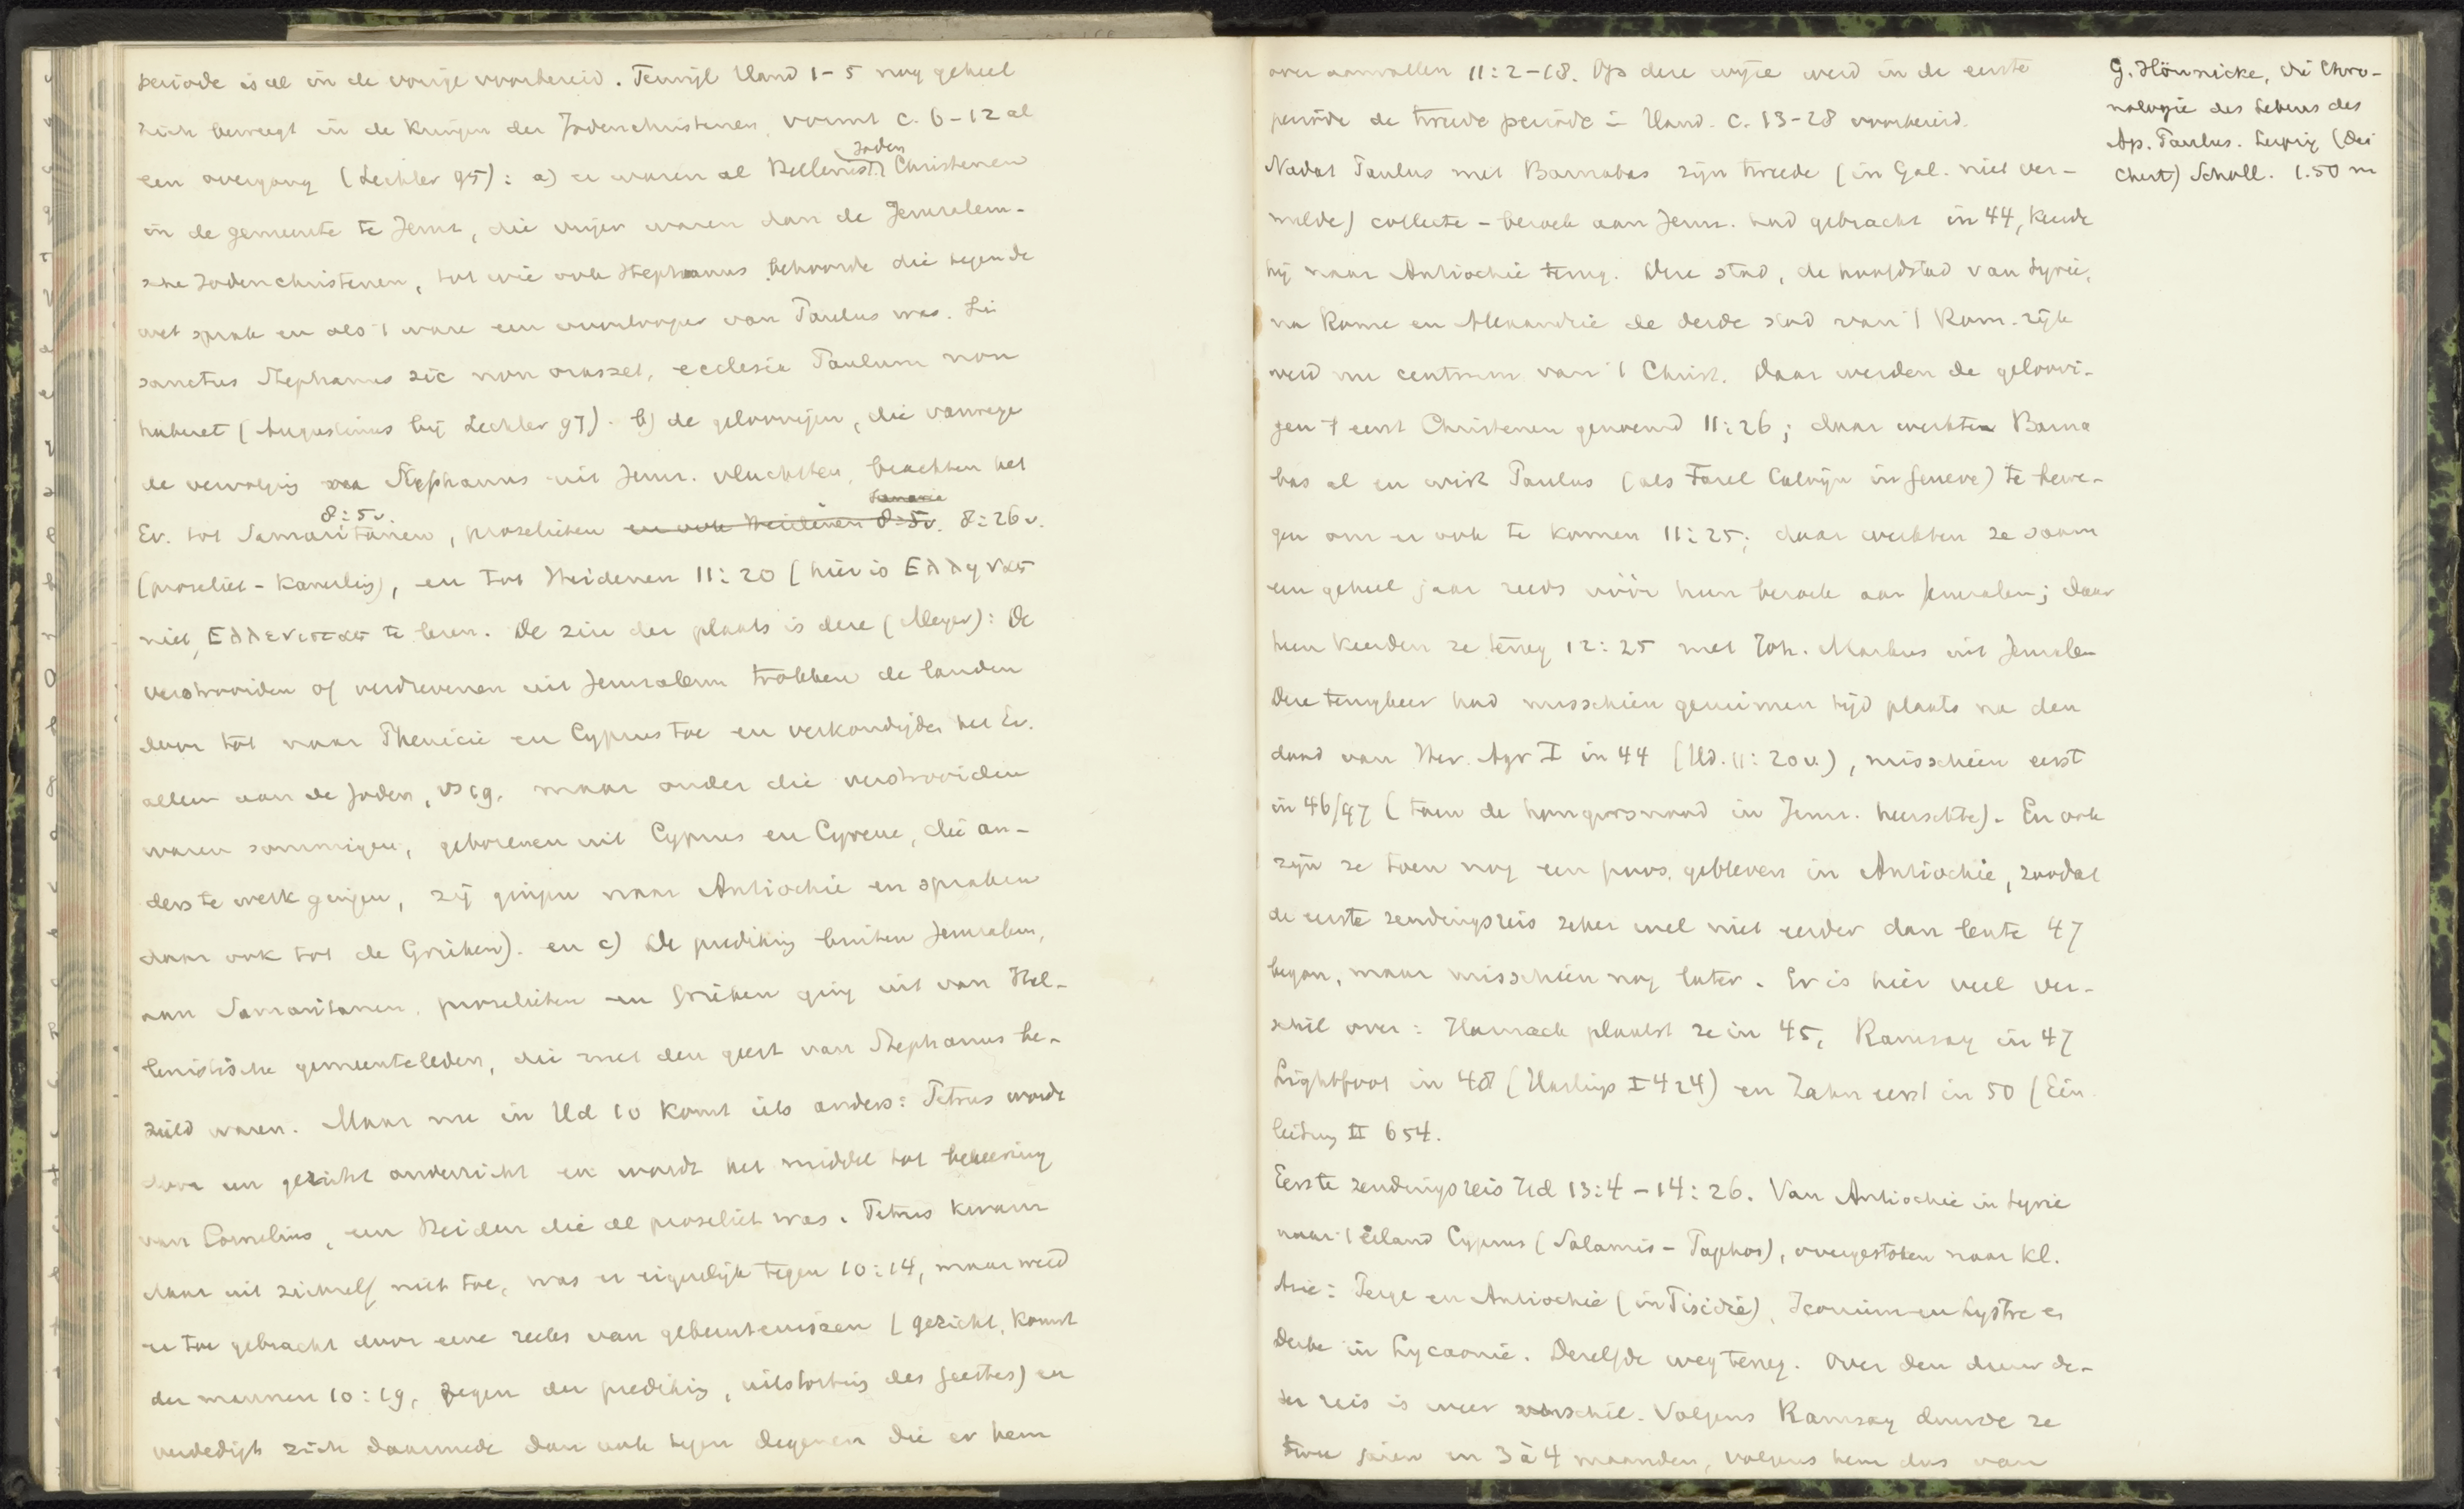 periode is al in de vorige voorbereid. Terwijl Hand 1-5 nog geheel
zich beweegt in de kringen der Jodenchristenen, vormt c. 6-12 al
een overgang (Lechler 95): a) er waren al Hellenist. Joden Christenen
in de gemeente te Jeruz, die vrijer waren dan de Jeruzalem-
sche Jodenchristenen, tot wie ook Stephanus behoorde die tegen de
wet sprak en als 't ware een voorlooper van Paulus was. Si
sanctus Stephanus sic non orasset, ecclesia Paulum non
haberet (Augustinus bij Lechler 97). b) de geloovigen, die vanwege
de vervolging van Stephanus uit Jeruz. vluchtten, brachten het
Ev. tot Samaritanen 8:5v., proselieten en ook Heidenen 8:5v. Samarie 8:26v.
(proseliet-kamerling), en tot Heidenen 11:20 (hier is Ελληνας
niet Ελλενιστας te lezen. De zin der plaats is deze (Meyer): De
verstrooiden of verdrevenen uit Jeruzalem trokken de landen
door tot naar Phenicie en Cyprus toe en verkondigden het Ev.
alleen aan de Joden, vs 19. maar onder die verstrooiden
waren sommigen, geborenen uit Cyprus en Cyrene, die an-
ders te werk gingen, zij gingen naar Antiochie en spraken
daar ook tot de Grieken). en c) De prediking buiten Jeruzalem,
aan Samaritanen, proselieten en Grieken ging uit van Hel-
lenistische gemeenteleden, die met den geest van Stephanus be-
zield waren. Maar nu in Hd 10 komt iets anders: Petrus wordt
door een gezicht onderricht en wordt het middel tot bekeering
van Cornelius, een Heiden die al proseliet was. Petrus kwam
daar uit zichzelf niet toe, was er eigenlijk tegen 10:14, maar werd
er toe gebracht door eene reeks van gebeurtenissen (gezicht, komst
der mannen 10:19, zegen der prediking, uitstorting des Geestes) en
verdedigt zich daarmede dan ook tegen degenen die er hem
over aanvallen 11:2-18. Op deze wijze werd in de eerste
periode de tweede periode = Hand. c. 13-28 voorbereid.
Nadat Paulus met Barnabas zijn tweede (in Gal. niet ver-
melde) collecte-bezoek aan Jeruz. had gebracht in 44, keerde
hij naar Antiochie terug. Deze stad, de hoofdstad van Syrie,
na Rome en Alexandrie de derde stad van 't Rom. rijk
werd nu centrum van 't Christ. Daar werden de geloovi-
gen 't eerst Christenen genoemd 11:26; daar werkten Barna
bas al en wist Paulus (als Farel Calvijn in Geneve) te bewe-
gen om er ook te komen 11:25; daar werkten ze saam
een geheel jaar reeds vóór hun bezoek aan Jeruzalem; daar
heen keerden ze terug 12:25 met Joh. Markus uit Jeruzalem
Deze terugkeer had misschien geruimen tijd plaats na den
dood van Her. Agr I in 44 (Hd. 11:20v.), misschien eerst
in 46/47 (toen de hongersnood in Jeruz. heerschte). En ook
zijn ze toen nog een poos gebleven in Antiochie, zoodat
de eerste zendingsreis zeker wel niet eerder dan lente 47
began, maar misschien nog later. Er is hier veel ver-
schil over: Harnack plaatst ze in 45, Ramsay in 47
Lightfoot in 48 (Hastings I 424) en Zahn eerst in 50 (Ein
leitung II 654.
Eerste zendingsreis Hd 13:4-14:26. Van Antiochie in Syrie
naar 't eiland Cyprus (Salamis-Paphos), overgestoken naar Kl.
Azie: Perge en Antiochie (in Pisidie), Iconium en Lystre en
Derbe in Lycaonie. Dezelfde weg terug. Over den duur de-
zer reis is weer verschil. Volgens Ramsay duurde ze
twee jaren en 3 à 4 maanden, volgens hem dus van
G. Hönnicke, die Chro-
nologie des Lebens des
Ap. Paulus. Leipzig (Dei
chert) Scholl. 1.50 m